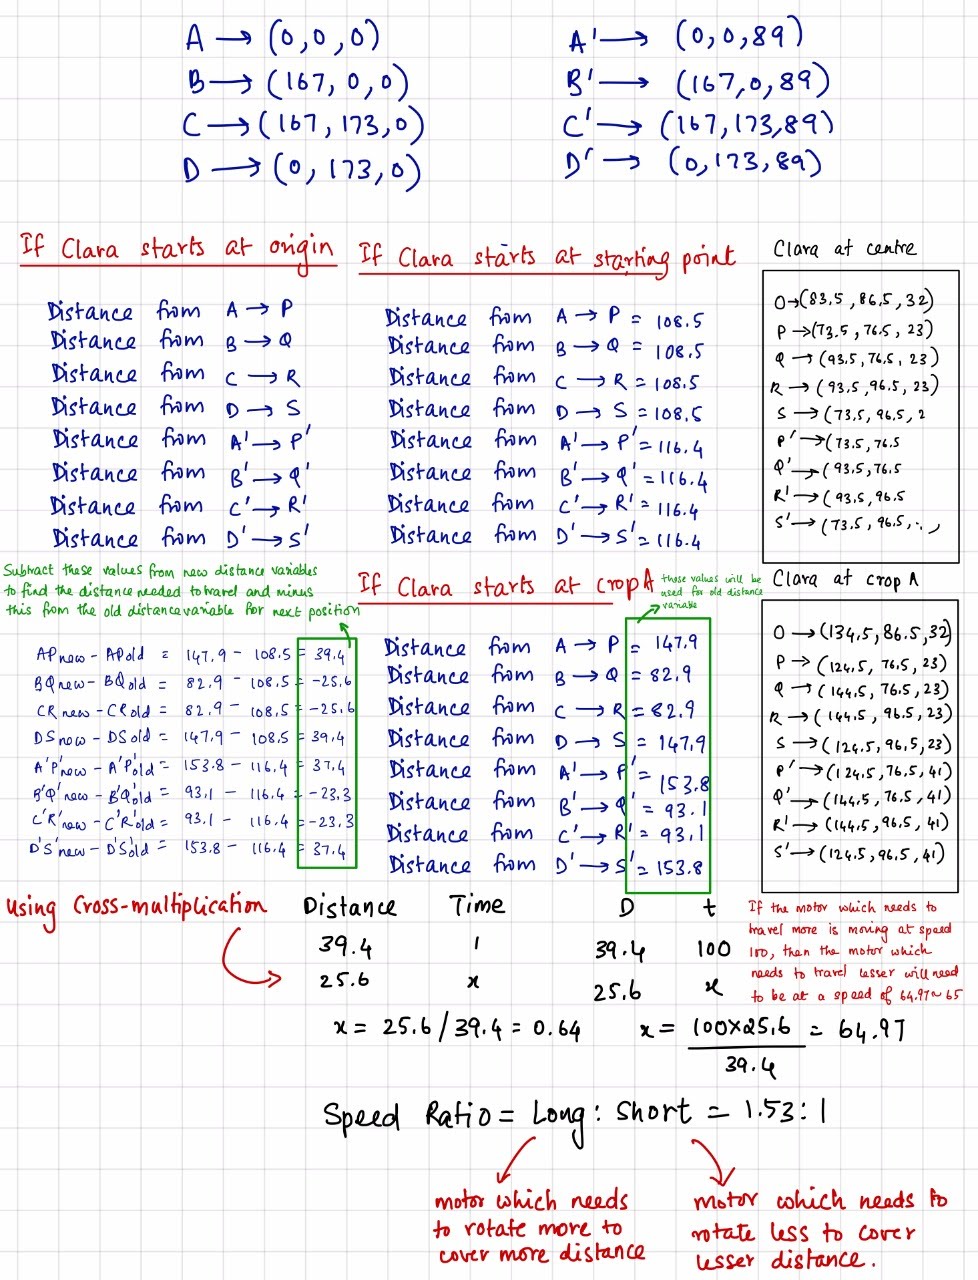 A → (0,0,0)
B → (167, 0, 0)
C → (167, 173, 0)
D → (0, 173, 0)
A' → (0, 0, 89)
B' → (167, 0, 89)
C' → (167, 173, 89)
D' → (0, 173, 89)
If Clara starts at origin
Distance from A → P
Distance from B → Q
Distance from C → R
Distance from D → S
Distance from A' → P'
Distance from B' → Q'
Distance from C' → R'
Distance from D' → S'
If Clara starts at starting point
Distance from A → P = 108.5
Distance from B → Q = 108.5
Distance from C → R = 108.5
Distance from D → S = 108.5
Distance from A' → P' = 116.4
Distance from B' → Q' = 116.4
Distance from C' → R' = 116.4
Distance from D' → S' = 116.4
Clara at centre
O → (83.5, 86.5, 32)
P → (73.5, 76.5, 23)
Q → (93.5, 76.5, 23)
R → (93.5, 96.5, 23)
S → (73.5, 96.5, 2
P' → (73.5, 76.5
Q' → (93.5, 76.5
R' → (93.5, 96.5
S' → (73.5, 96.5,
Subtract these values from new distance variables
to find the distance needed to travel and minus
this from the old distance variable for next position
AP new - AP old = 147.9 - 108.5 = 39.4
BQ new - BQ old = 82.9 - 108.5 = -25.6
CR new - CR old = 82.9 - 108.5 = -25.6
DS new - DS old = 147.9 - 108.5 = 39.4
A'P' new - A'P' old = 153.8 - 116.4 = 37.4
B'Q' new - B'Q' old = 93.1 - 116.4 = -23.3
C'R' new - C'R' old = 93.1 - 116.4 = -23.3
D'S' new - D'S' old = 153.8 - 116.4 = 37.4
If Clara starts at crop A
these values will be
used for old distance
variable
Distance from A → P = 147.9
Distance from B → Q = 82.9
Distance from C → R = 82.9
Distance from D → S = 147.9
Distance from A' → P' = 153.8
Distance from B' → Q' = 93.1
Distance from C' → R' = 93.1
Distance from D' → S' = 153.8
Clara at crop A
O → (134.5, 86.5, 32)
P → (124.5, 76.5, 23)
Q → (144.5, 76.5, 23)
R → (144.5, 96.5, 23)
S → (124.5, 96.5, 23)
P' → (124.5, 76.5, 41)
Q' → (144.5, 76.5, 41)
R' → (144.5, 96.5, 41)
S' → (124.5, 96.5, 41)
Using Cross-multiplication
Distance Time
39.4 1
25.6 x
x = 25.6 / 39.4 = 0.64
D t
39.4 100
25.6 x
x = 100×25.6 = 64.97
39.4
If the motor which needs to
travel more is moving at speed
100, then the motor which
needs to travel lesser will need
to be at a speed of 64.97 ~ 65
Speed Ratio = Long : Short = 1.53 : 1
motor which needs
to rotate more to
cover more distance
motor which needs to
rotate less to cover
lesser distance.